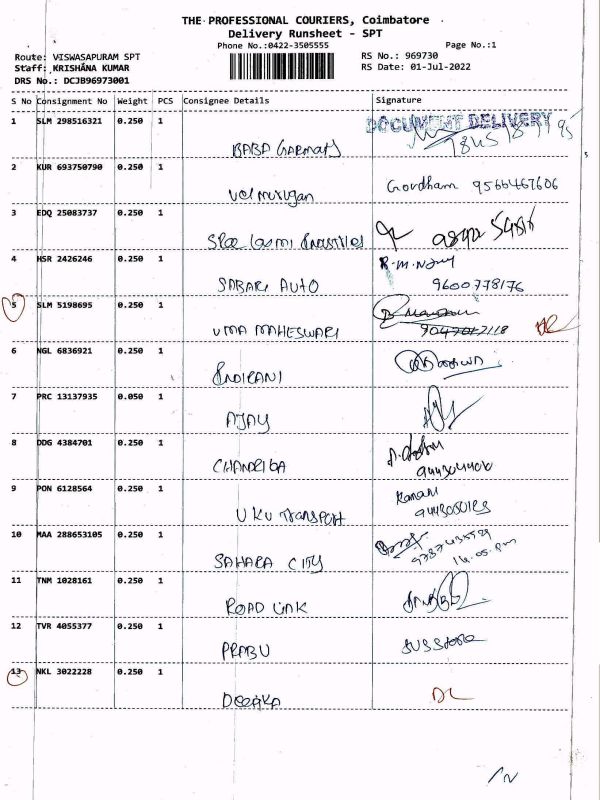 THE PROFESSIONAL COURIERS, Coimbatore
Delivery Runsheet - SPT
Phone No.:0422-3505555
Page No.:1
Route: VISWASAPURAM SPT
RS No.: 969730
Staff: KRISHÃNA KUMAR
RS Date: 01-Jul-2022
DRS No.: DCJB96973001
S No Consignment No Weight PCS Consignee Details Signature
1 SLM 298516321 0.250 1
DOCUMENT DELIVERY
BABA GARMATS
2 KUR 693750790 0.250 1
velmurugan Gowdham 9566467606
3 EDQ 25083737 0.250 1
Sree Laxmi Industries
4 HSR 2426246 0.250 1
SABARI AUTO 9600778176
5 SLM 5198695 0.250 1
UMA MAHESWARI 9047017118
6 NGL 6836921 0.250 1
INDIRANI
7 PRC 13137935 0.050 1
AJAY
8 DDG 4384701 0.250 1
CHANDRIGA
9 PON 6128564 0.250 1
Kanani
UKV TRANSPORT
10 MAA 288653105 0.250 1
SAHARA CITY
11 TNM 1028161 0.250 1
ROAD LINK
12 TVR 4055377 0.250 1
PRABU
13 NKL 3022228 0.250 1
DEEPKA DL